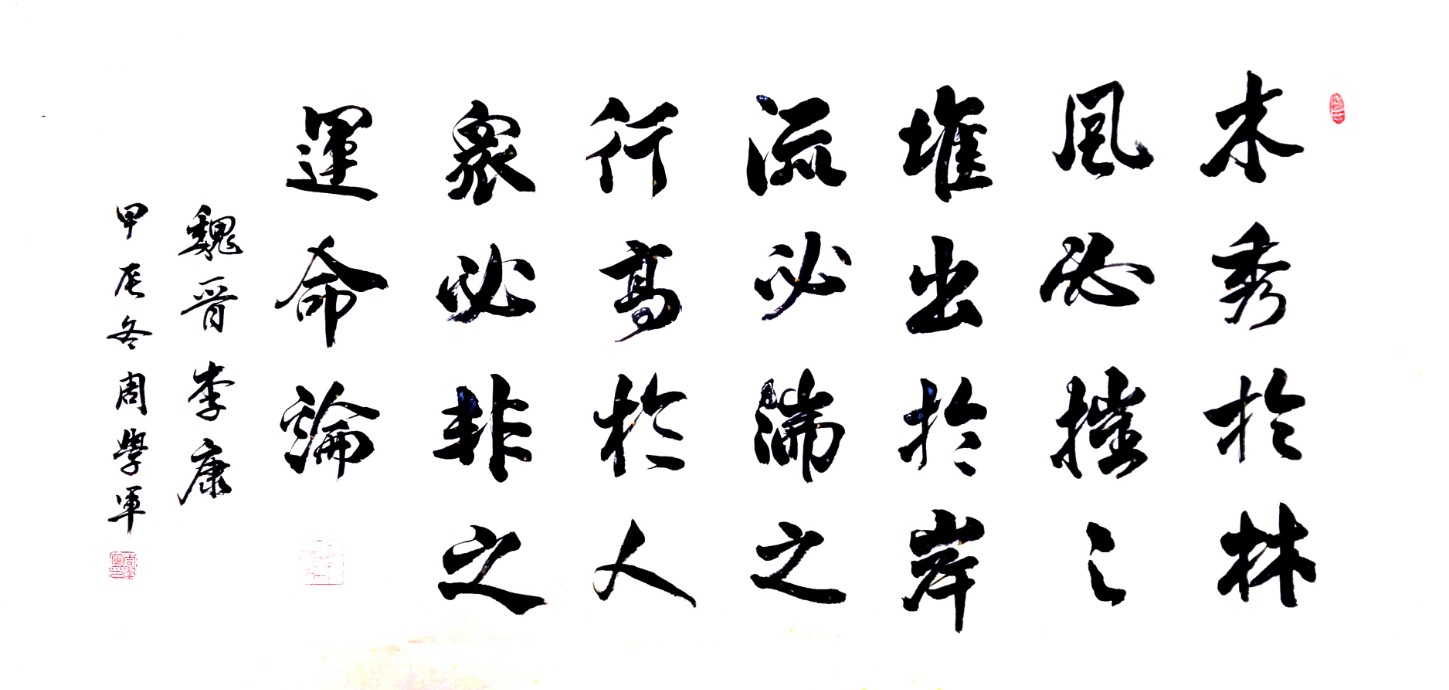 木秀於林
風必摧之
堆出於岸
流必湍之
行高於人
衆必非之
運命論
魏晉李康
甲辰冬周學軍